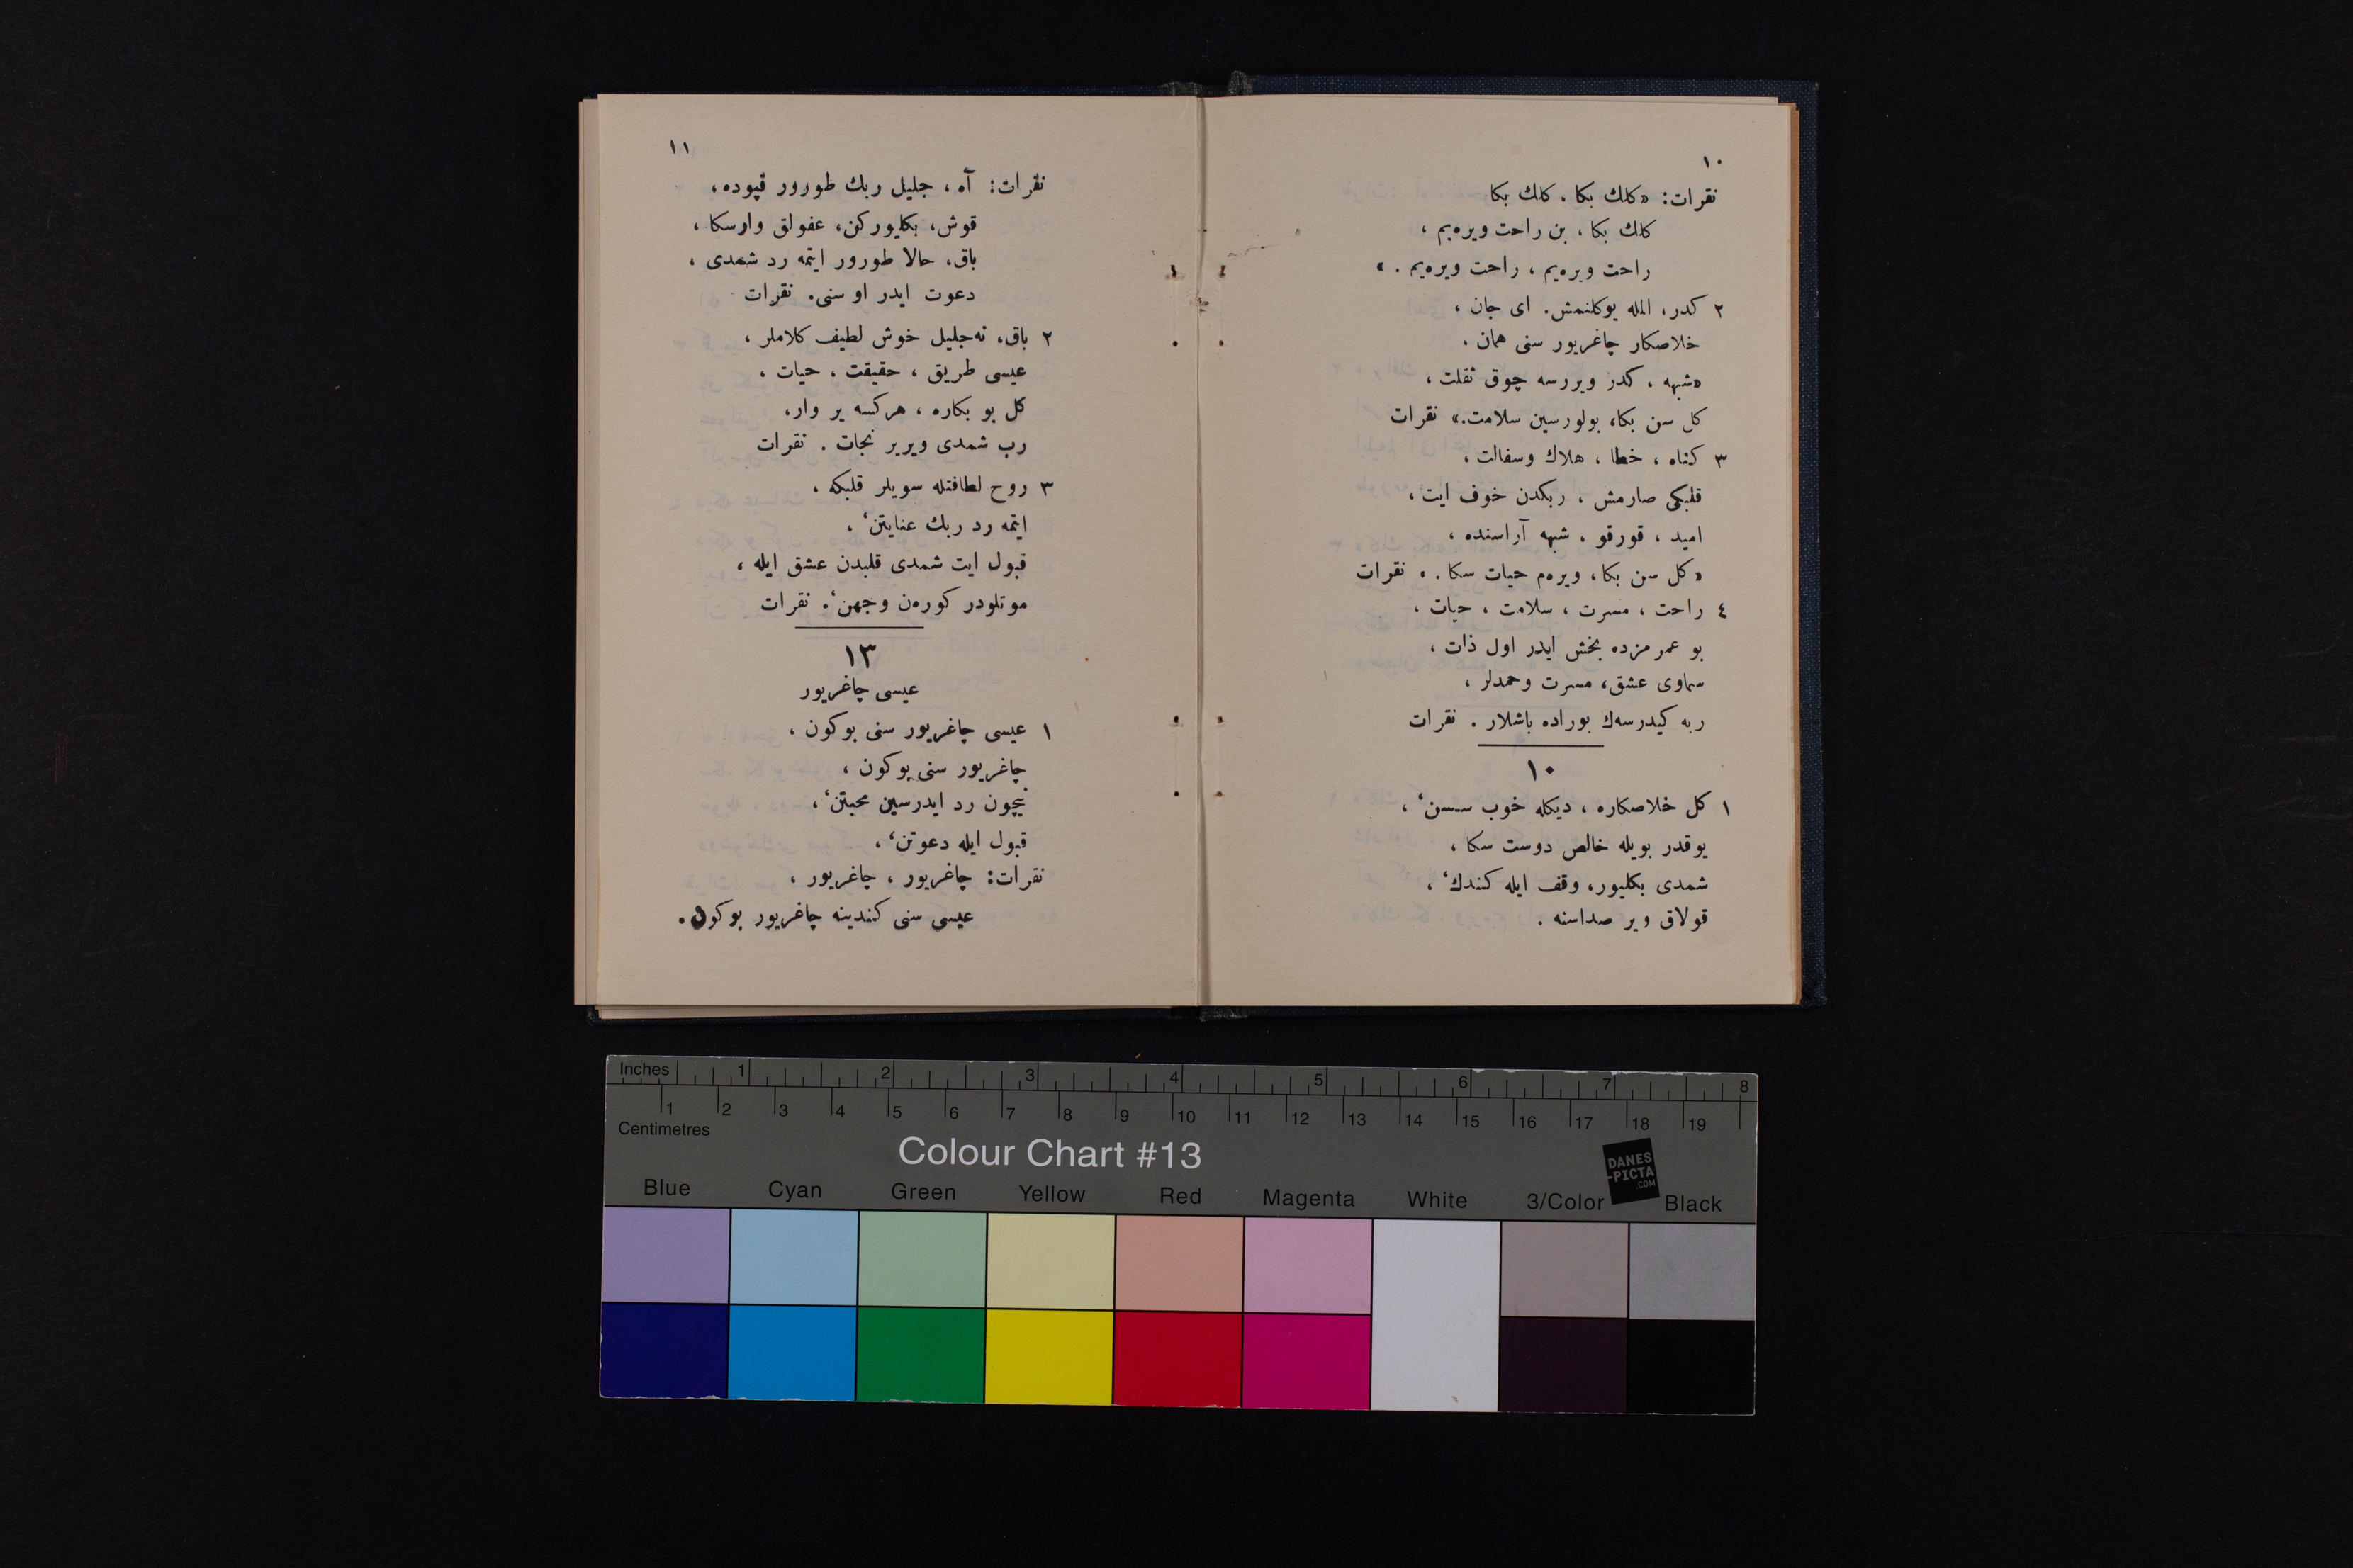 ١٠
نقرات: «كلك بكا . كلك بكا
كلك بكا ، بن راحت ويره‌يم ،
راحت ويره‌يم ، راحت ويره‌يم . »
٢ كدر، المله يوكلنمش. اى جان ،
خلاصكار چاغريور سنى همان .
«شبهه ، كدر ويررسه چوق ثقلت ،
كل سن بكا، بولورسين سلامت.» نقرات
٣ كناه ، خطا ، هلاك وسفالت ،
قلبكى صارمش ، ربكدن خوف ايت ،
اميد ، قورقو ، شبهه آراسنده ،
«كل سن بكا، ويره‌م حيات سكا . » نقرات
٤ راحت ، مسرت ، سلامت ، حيات ،
بو عمرمزده بخش ايدر اول ذات ،
سماوى عشق، مسرت وحمدلر ،
ربه كيدرسه‌ك بوراده باشلار . نقرات
١٠
١ كل خلاصكاره ، ديكله خوب سسن‘ ،
يوقدر بويله خالص دوست سكا ،
شمدى بكليور، وقف ايله كندك‘ ،
قولاق وير صداسنه .
١١
نقرات: آه ، جليل ربك طورور قپوده ،
قوش، بكليوركن، عفولق وارسكا ،
باق، حالا طورور ايتمه رد شمدى ،
دعوت ايدر او سنى. نقرات
٢ باق، نه‌جليل خوش لطيف كلاملر ،
عيسى طريق ، حقيقت ، حيات ،
كل بو بكاره ، هركسه ير وار،
رب شمدى ويرير نجات . نقرات
٣ روح لطافتله سويلر قلبكه ،
ايتمه رد ربك عنايتن‘ ،
قبول ايت شمدى قلبدن عشق ايله ،
موتلودر كوره‌ن وجهن‘. نقرات
١٣
عيسى چاغريور
١ عيسى چاغريور سنى بوكون ،
چاغريور سنى بوكون ،
نيچون رد ايدرسين محبتن‘،
قبول ايله دعوتن‘ ،
نقرات: چاغريور ، چاغريور ،
عيسى سنى كندينه چاغريور بوكون.
Inches 1 2 3 4 5 6 7 8
1 2 3 4 5 6 7 8 9 10 11 12 13 14 15 16 17 18 19
Centimetres
Colour Chart #13
DANES
-PICTA
.COM
Blue Cyan Green Yellow Red Magenta White 3/Color Black